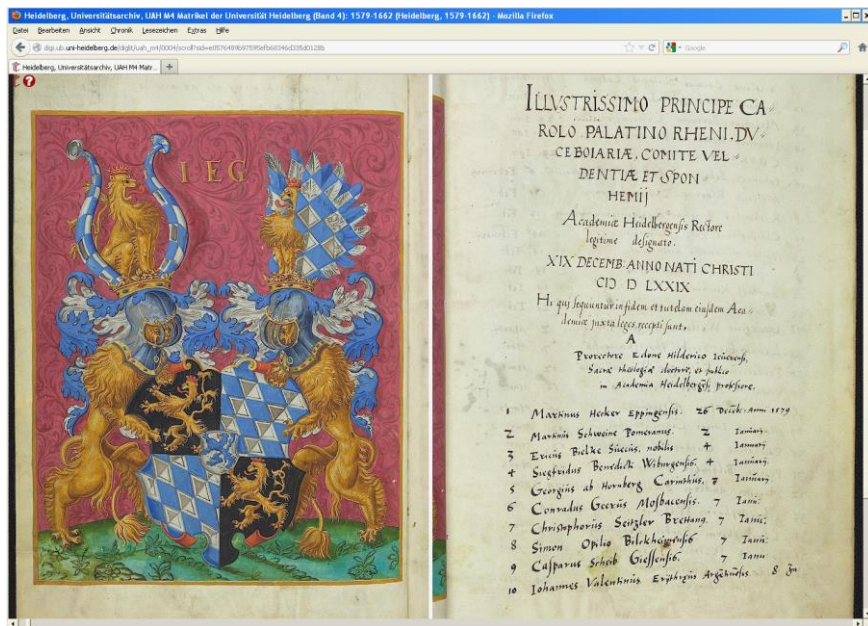 Heidelberg, Universitätsarchiv, UAH M4 Matrikel der Universität Heidelberg (Band 4): 1579-1662 (Heidelberg, 1579-1662) - Mozilla Firefox
Datei Bearbeiten Ansicht Chronik Lesezeichen Extras Hilfe
digi.ub.uni-heidelberg.de/diglit/uah_m4/0004/scroll?sid= Google
Heidelberg, Universitätsarchiv, UAH M4 Matr... +
I E G
ILLVSTRISSIMO PRINCIPE CA
ROLO PALATINO RHENI. DV-
CE BOIARIÆ. COMITE VEL-
DENTIÆ ET SPON
HEMIJ
Academiæ Heidelbergensis Rectore
legitime designato.
XIX DECEMB: ANNO NATI CHRISTI
CIƆ D LXXIX
Hi qui sequuntur in fidem et tutelam eiusdem Aca-
demiæ juxta leges recepti sunt.
A
Prorectore Edone Hilderico
Sacræ theologiæ doctore, et publico
in Academia Heidelbergensi professore.
1 Martinus Hecker Eppingensis. 26 Anni 1579
2 Martinus Schweine Pomeranus. 2 Ianuarij
3 Ericus Bielke Suecus, nobilis 4 Ianuarij
4 Siegfridus Benedicti Wiburgensis. 4 Ianuarij
5 Georgius ab Hornberg Carinthius, 7 Ianuarij
6 Conradus Geerus Mosbacensis. 7 Ianu:
7 Christophorus Seitzler 7 Ianu:
8 Simon Opilio 7 Ianu:
9 Casparus Scheib Giessensis. 7 Ianu
10 Iohannes Valentinus Erythreus 8